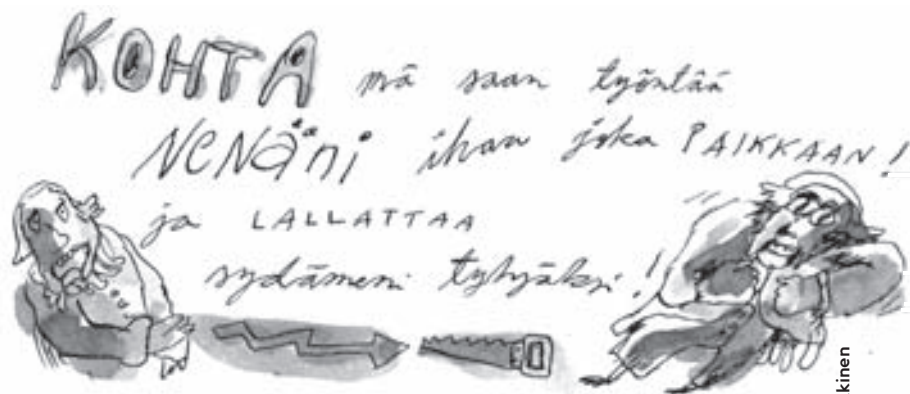 KOHTA mä saan työntää
NENäni ihan joka PAIKKAAN!
ja LALLATTAA
sydämeni tyhjäksi!
kinen